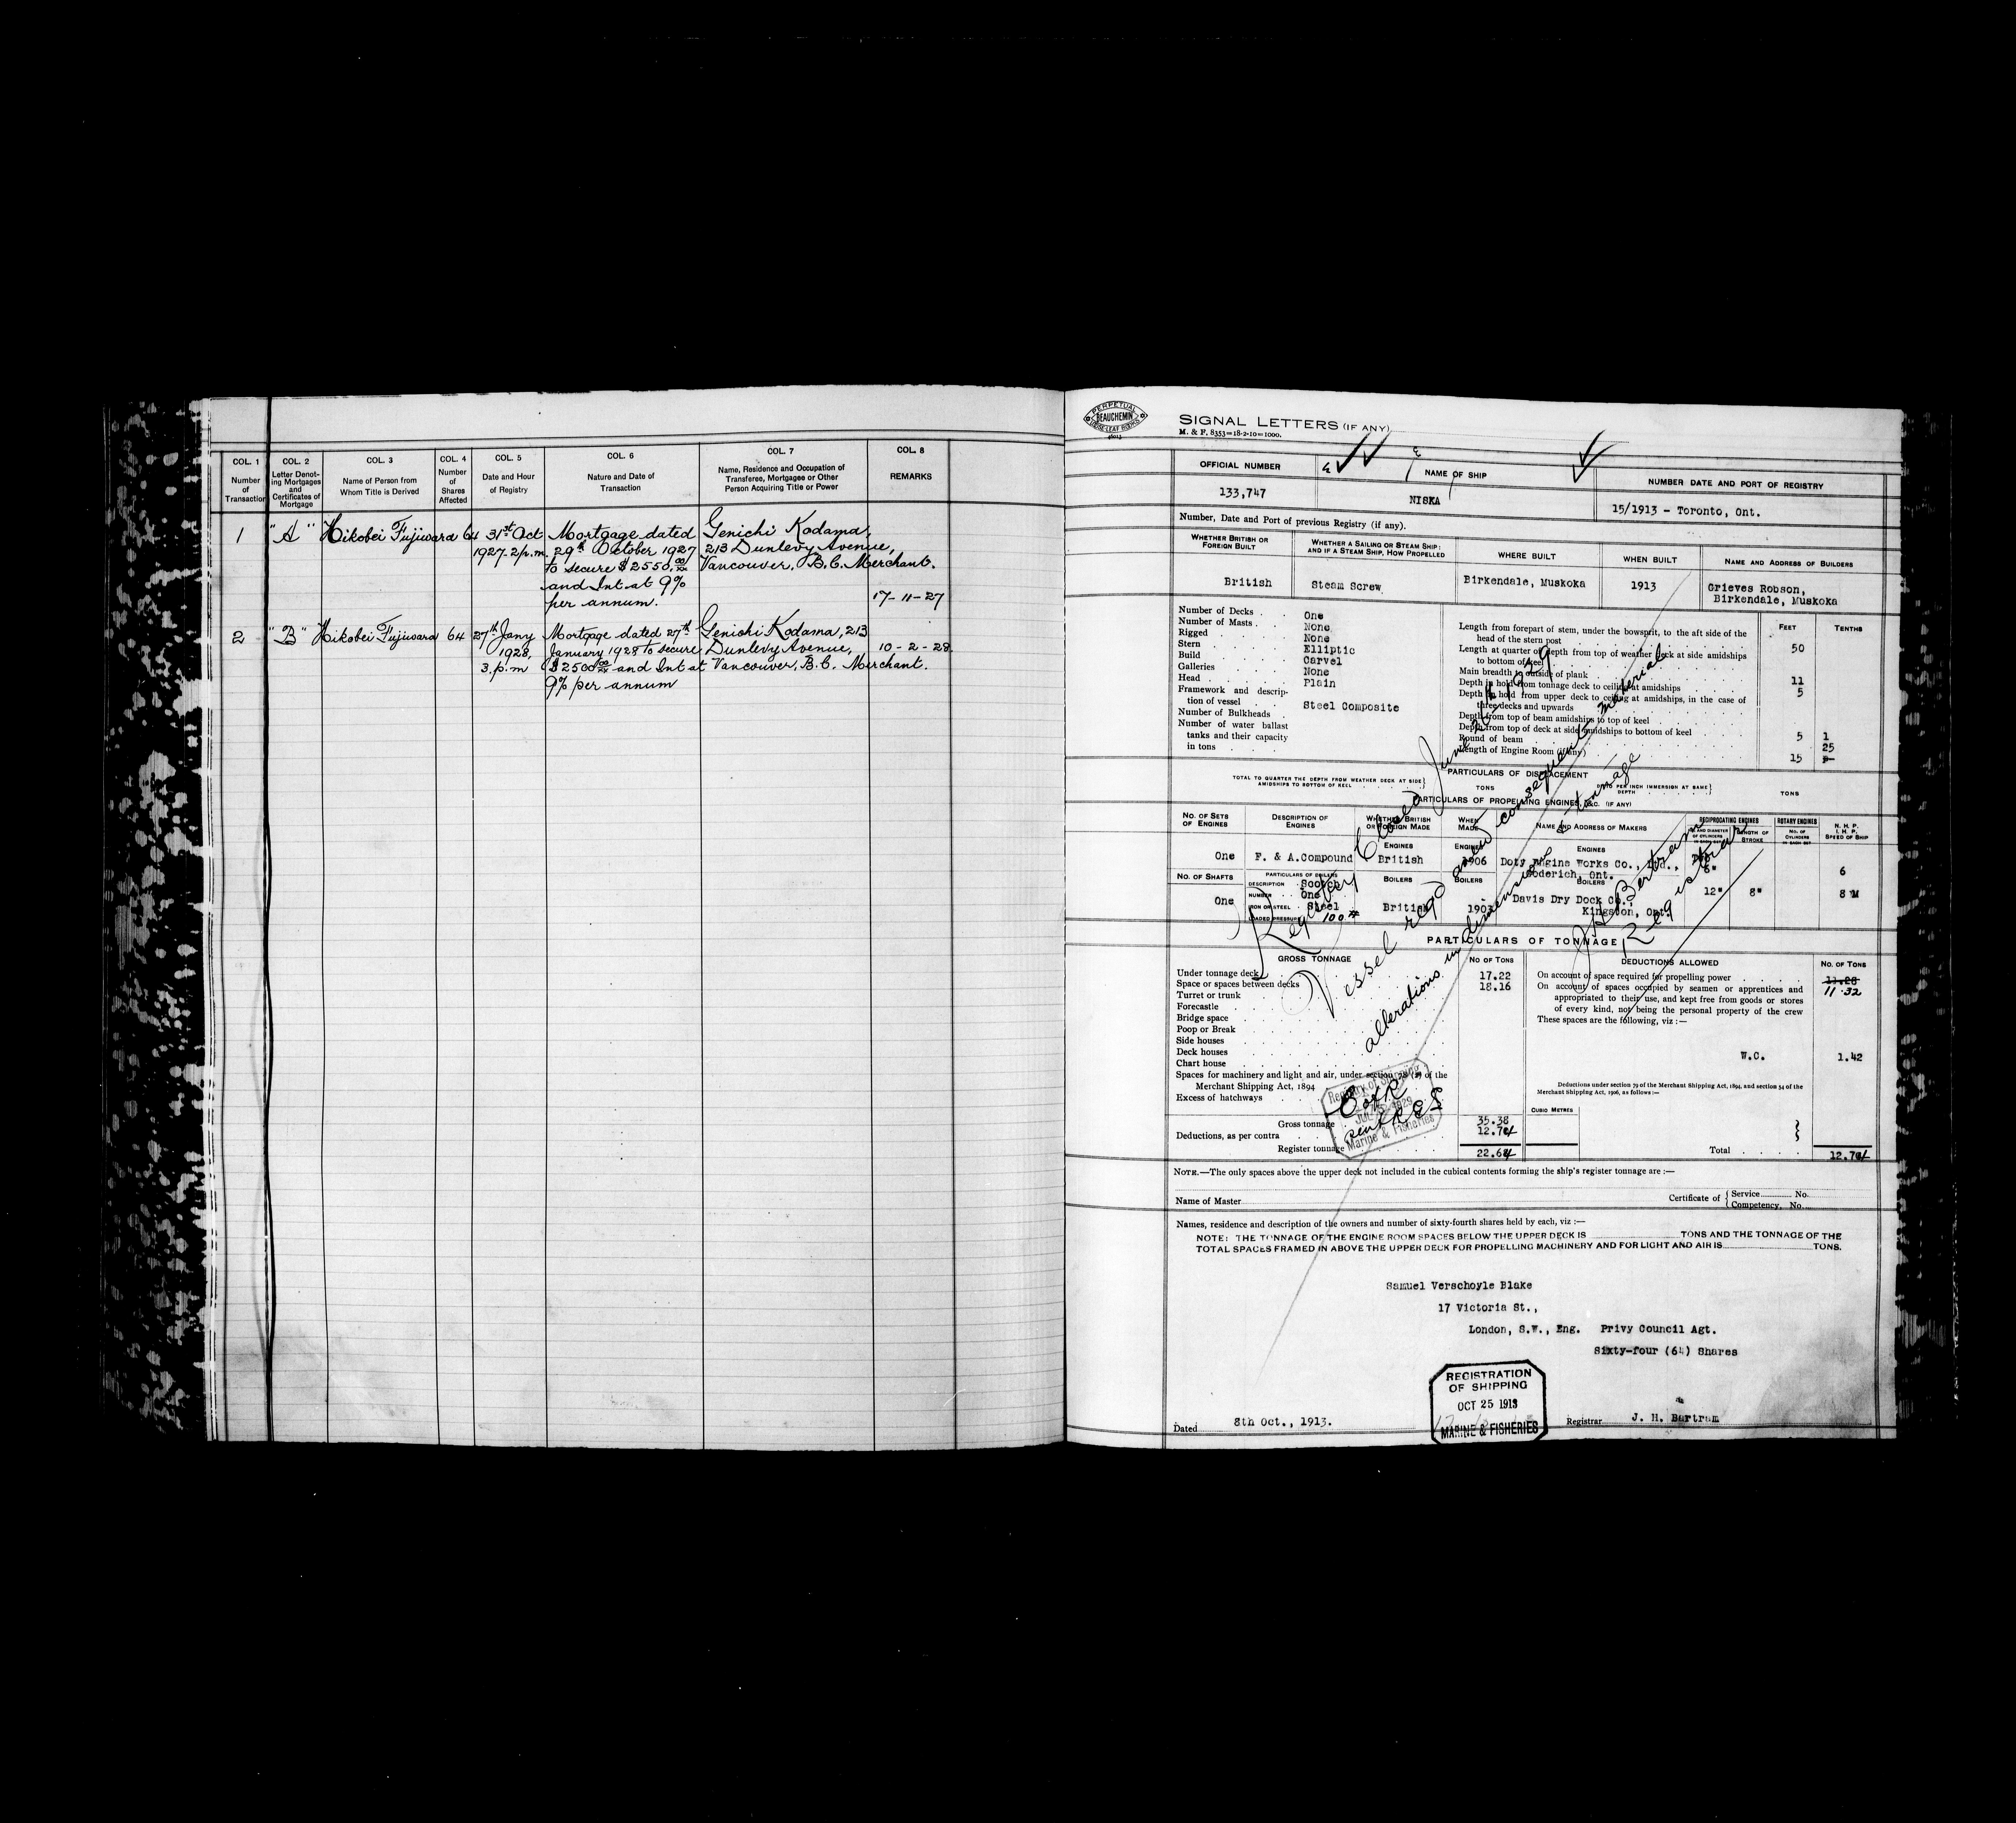 COL. 1 COL. 2 COL. 3 COL. 4 COL. 5 COL. 6 COL. 7 COL. 8
Number of Transaction
Letter Denoting Mortgages and Certificates of Mortgage
Name of Person from Whom Title is Derived
Number of Shares Affected
Date and Hour of Registry
Nature and Date of Transaction
Name, Residence and Occupation of Transferee, Mortgagee or Other Person Acquiring Title or Power
REMARKS
1 "A" Hikobei Fujiwara 64 31st Oct Mortgage dated Genichi Kodama,
1927. 2 p.m. 29th October 1927 213 Dunlevy Avenue,
to secure $2550.00/xx Vancouver, B.C. Merchant.
and Int at 9%
per annum. 17-11-27
2 "B" Hikobei Fujiwara 64 27th Jany Mortgage dated 27th Genichi Kodama, 213
1928, January 1928 to secure Dunlevy Avenue, 10-2-28
3. p.m $2500 00/xx and Int at Vancouver, B.C. Merchant.
9% per annum
PERPETUAL
BEAUCHEMIN
LOOSE-LEAF BOOKS
SIGNAL LETTERS (IF ANY)
M. & F. 8353=18-2-10=1000.
OFFICIAL NUMBER NAME OF SHIP NUMBER DATE AND PORT OF REGISTRY
133,747 NISKA 15/1913 - Toronto, Ont.
Number, Date and Port of previous Registry (if any).
WHETHER BRITISH OR FOREIGN BUILT
WHETHER A SAILING OR STEAM SHIP: AND IF A STEAM SHIP, HOW PROPELLED
WHERE BUILT WHEN BUILT NAME AND ADDRESS OF BUILDERS
British Steam Screw Birkendale, Muskoka 1913 Grieves Robson,
Birkendale, Muskoka
Number of Decks One
Number of Masts None
Rigged None
Stern Elliptic
Build Carvel
Galleries None
Head Plain
Framework and description of vessel Steel Composite
Number of Bulkheads
Number of water ballast
tanks and their capacity
in tons
FEET TENTHS
Length from forepart of stem, under the bowsprit, to the aft side of the
head of the stern post 50
Length at quarter of depth from top of weather deck at side amidships
to bottom of keel
Main breadth to outside of plank 11
Depth in hold from tonnage deck to ceiling at amidships 5
Depth in hold from upper deck to ceiling at amidships, in the case of
three decks and upwards
Depth from top of beam amidships to top of keel
Depth from top of deck at side amidships to bottom of keel 5 1
Round of beam 25
Length of Engine Room (if any) 15 5
PARTICULARS OF DISPLACEMENT
TOTAL TO QUARTER THE DEPTH FROM WEATHER DECK AT SIDE AMIDSHIPS TO BOTTOM OF KEEL TONS DITTO PER INCH IMMERSION AT SAME DEPTH TONS
PARTICULARS OF PROPELLING ENGINES, &C. (IF ANY)
NO. OF SETS OF ENGINES
DESCRIPTION OF ENGINES
WHETHER BRITISH OR FOREIGN MADE
WHEN MADE
NAME AND ADDRESS OF MAKERS
RECIPROCATING ENGINES ROTARY ENGINES
N. H. P. I. H. P. SPEED OF SHIP
ENGINES ENGINES ENGINES
One F. & A. Compound British 1906 Doty Engine Works Co., Ltd.,
Goderich, Ont. 6" 6
NO. OF SHAFTS PARTICULARS OF BOILERS BOILERS BOILERS BOILERS
DESCRIPTION Scotch
NUMBER One
One IRON OR STEEL Steel British Davis Dry Dock Co., 12" 8" 8 M
LOADED PRESSURE 100 Kingston, Ont.
PARTICULARS OF TONNAGE
GROSS TONNAGE NO OF TONS DEDUCTIONS ALLOWED NO. OF TONS
Under tonnage deck 17.22
Space or spaces between decks 18.16
Turret or trunk
Forecastle
Bridge space
Poop or Break
Side houses
Deck houses
Chart house
Spaces for machinery and light and air, under section 78 (2) of the
Merchant Shipping Act, 1894
Excess of hatchways
Gross tonnage 35.38
Deductions, as per contra 12.74
Register tonnage 22.64
On account of space required for propelling power 11.28
11.32
On account of spaces occupied by seamen or apprentices and
appropriated to their use, and kept free from goods or stores
of every kind, not being the personal property of the crew
These spaces are the following, viz :—
W.C. 1.42
Deductions under section 79 of the Merchant Shipping Act, 1894, and section 54 of the
Merchant Shipping Act, 1906, as follows :—
CUBIC METRES
Total 12.74
Registry Closed June 26th 1929
Vessel regd anew consequent material
alterations in dimensions & tonnage
J H Bertram
Registrar
Registry of Shipping
JUL 5 1929
Marine & Fisheries
NOTE.—The only spaces above the upper deck not included in the cubical contents forming the ship's register tonnage are :—
Name of Master Certificate of { Service No.
Competency, No.
Names, residence and description of the owners and number of sixty-fourth shares held by each, viz :—
NOTE: THE TONNAGE OF THE ENGINE ROOM SPACES BELOW THE UPPER DECK IS TONS AND THE TONNAGE OF THE
TOTAL SPACES FRAMED IN ABOVE THE UPPER DECK FOR PROPELLING MACHINERY AND FOR LIGHT AND AIR IS TONS.
Samuel Verschoyle Blake
17 Victoria St.,
London, S.W., Eng. Privy Council Agt.
Sixty-four (64) Shares
REGISTRATION
OF SHIPPING
OCT 25 1913
MARINE & FISHERIES
Dated 8th Oct., 1913. Registrar J. H. Bertram